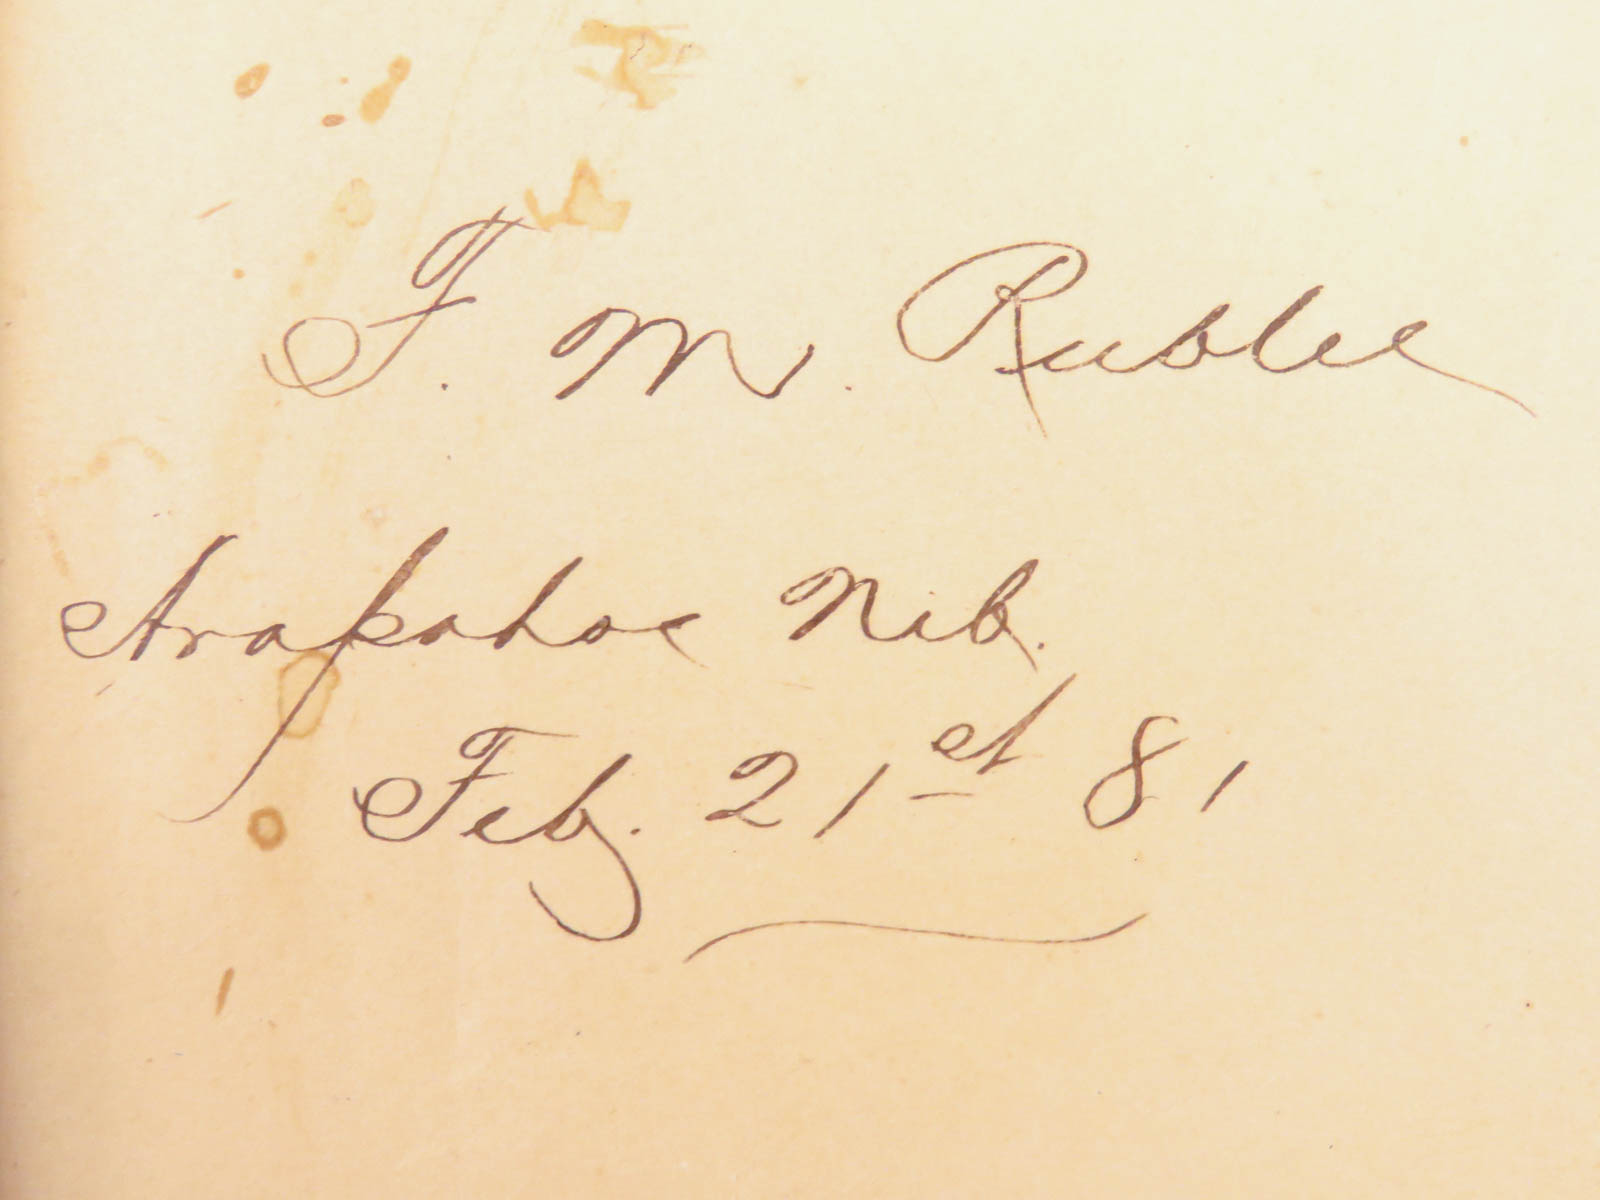 F. M. Rublee
Arapahoe Neb.
Feb. 21st 81